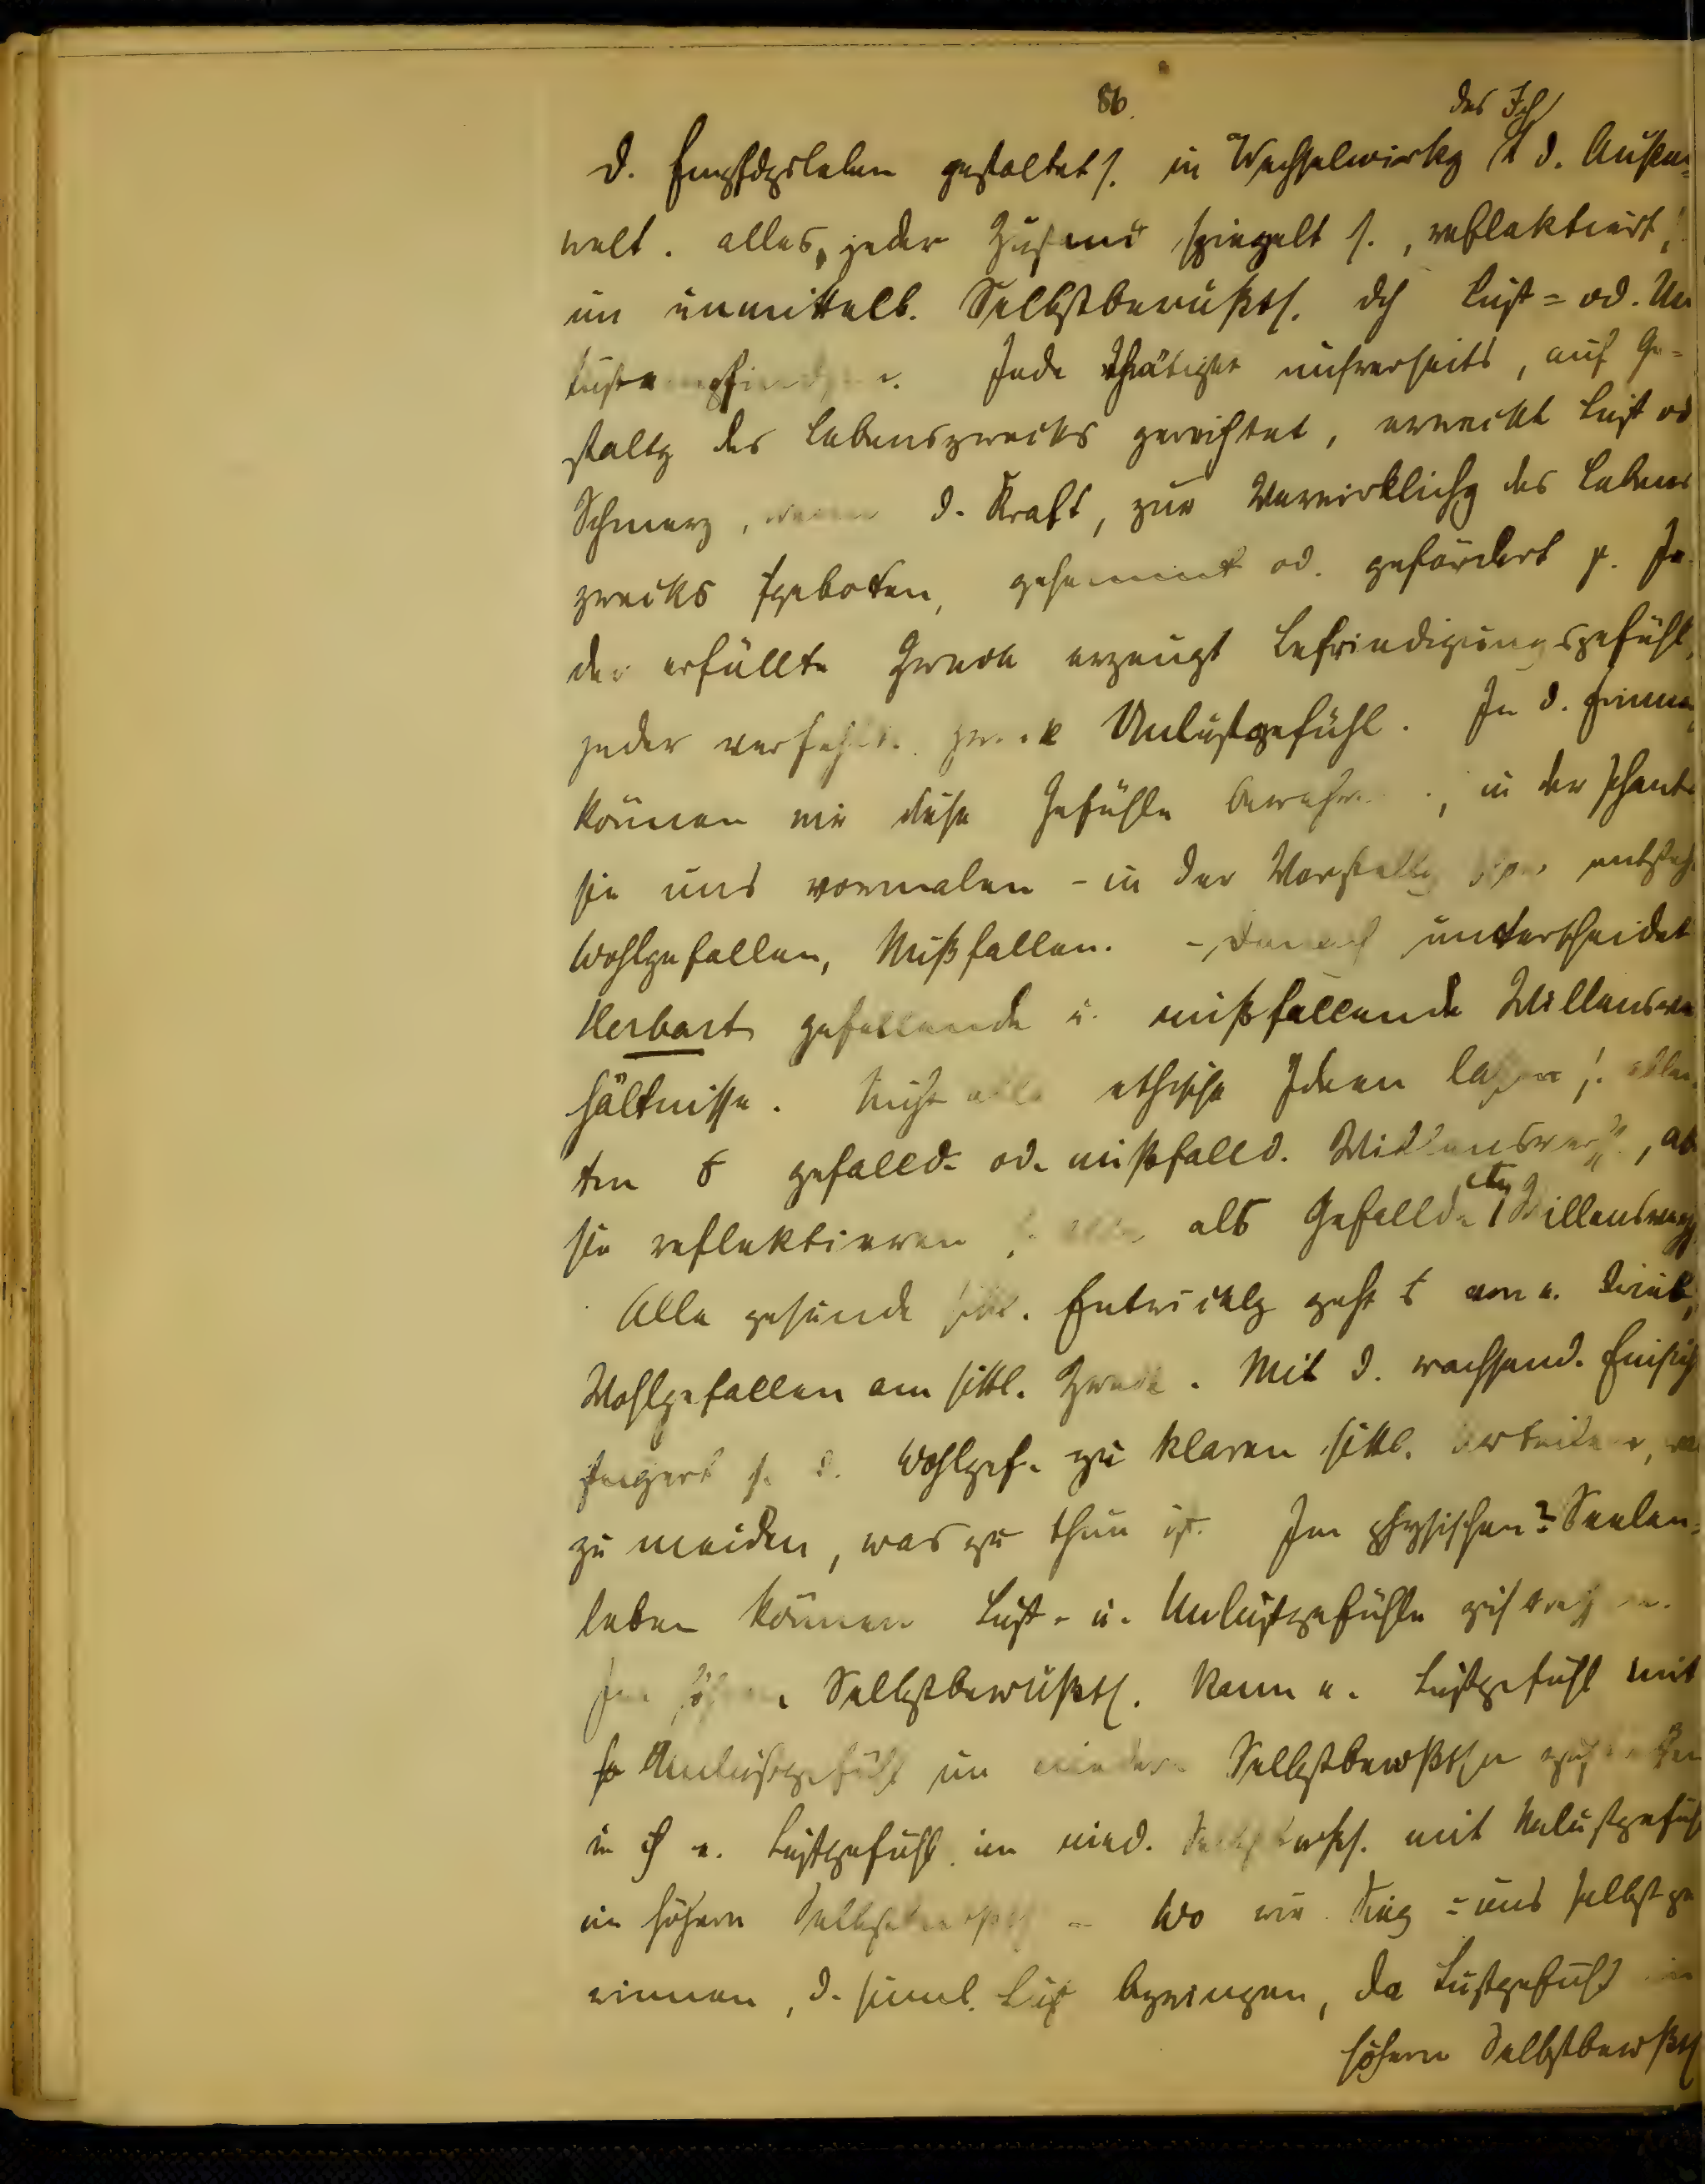 86.
des Ich
D. Empfdgsleben gestaltet s. in Wechselwirkg d. Außen-
welt. alles, jeder Zustand spiegelt s., reflektiert,
im unmittelb. Selbstbewußts. dch Lust= od. Un
lustempfindgen. Jede Thätigkt unsrerseits, auf Ge-
staltg des Lebenszwecks gerichtet, erweckt Lust od
Schmerz, wenn d. Kraft, zur Verwirklichg des Lebens
zwecks geboten, gehemmt od. gefördert Je
der erfüllte Zweck erzeugt Befriedigungsgefühl,
jeder verfehlte Zweck Unlustgefühl. In d. Erinner
können wir diese Gefühle bewahren, in der Phant.
sie uns vormalen - in der Vorstellg entsteh
Wohlgefallen, Mißfallen. - Danach unterscheidet
Herbart gefallende u. mißfallende Willensver
hältnisse. Nicht alle ethische Ideen lassen s.
ten gefalld. od. mißfalld. Willensverh., ab
sie reflektieren s. als Gefalld. Willensverh.
Alle gesunde sittl. Entwicklg geht von e. Trieb,
Wohlgefallen am sittl. Zweck. Mit d. wachsend. Einsich
steigert s. d. Wohlgef. zu klaren sittl. Urteilen, was
zu meiden, was zu thun ist. Im physischen Seelen-
leben können Lust- u. Unlustgefühle
Im höhern Selbstbewußts. kann e. Lustgefühl mit
Unlustgefühl im niedern Selbstbewßtsn
e. Lustgefühl im nied. Selbstbewßts. mit Unlustgefüh
im höhern Selbstbewßts - Wo wir Sieg uns selbst ge
winnen, d. sinnl. Lust bezwingen, da Lustgefühl im
höhern Selbstbewßts